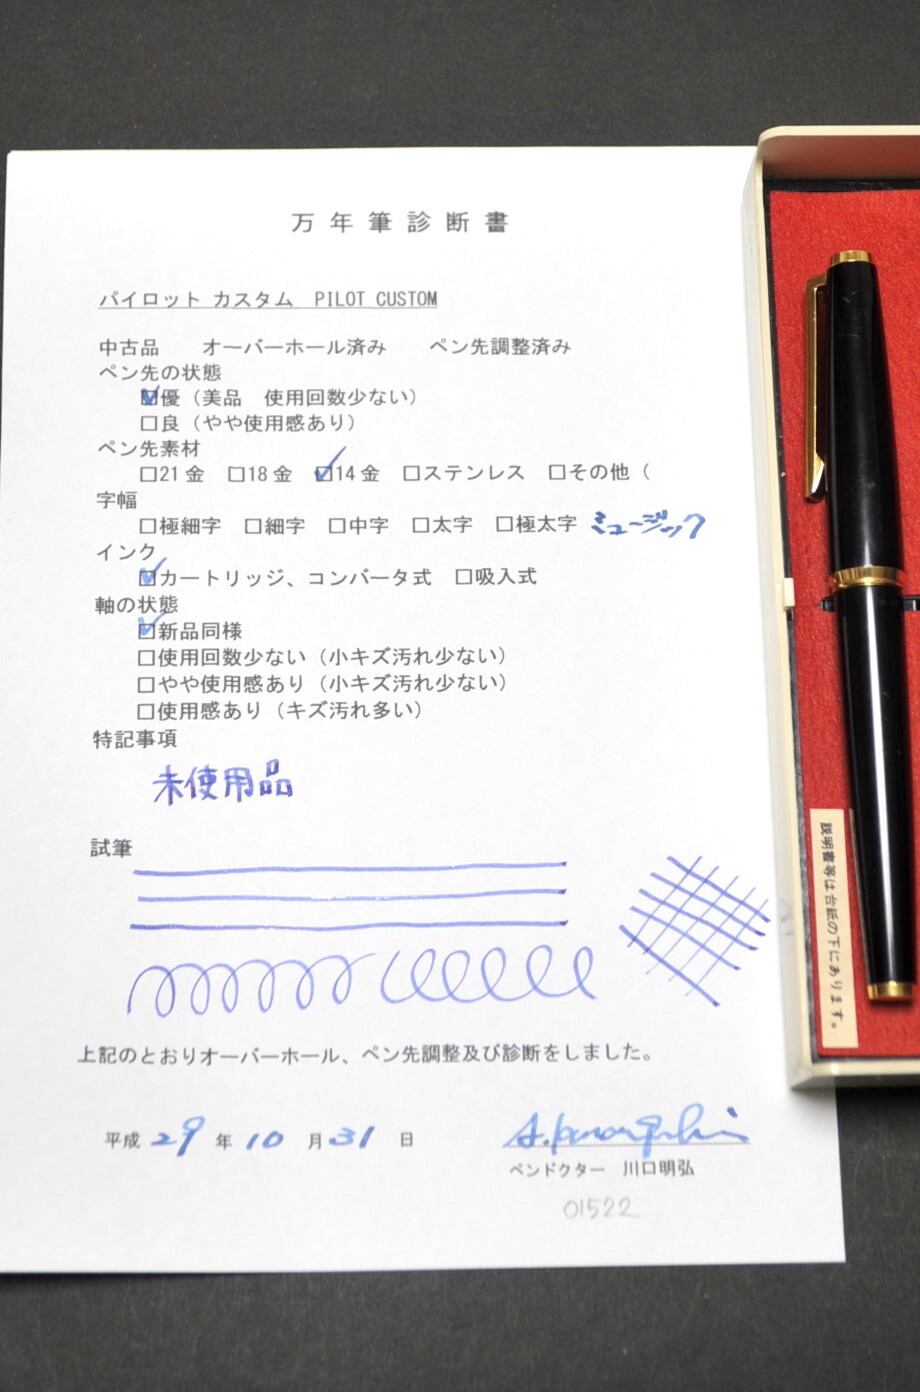 万年筆診断書
パイロット カスタム PILOT CUSTOM
中古品 オーバーホール済み ペン先調整済み
ペン先の状態
☑優（美品 使用回数少ない）
□良（やや使用感あり）
ペン先素材
□21金 □18金 ☑14金 □ステンレス □その他（
字幅
□極細字 □細字 □中字 □太字 □極太字 ミュージック
インク
☑カートリッジ、コンバータ式 □吸入式
軸の状態
☑新品同様
□使用回数少ない（小キズ汚れ少ない）
□やや使用感あり（小キズ汚れ少ない）
□使用感あり（キズ汚れ多い）
特記事項
未使用品
試筆
上記のとおりオーバーホール、ペン先調整及び診断をしました。
平成 29 年 10 月 31 日
ペンドクター 川口明弘
01522
説明書等は台紙の下にあります。